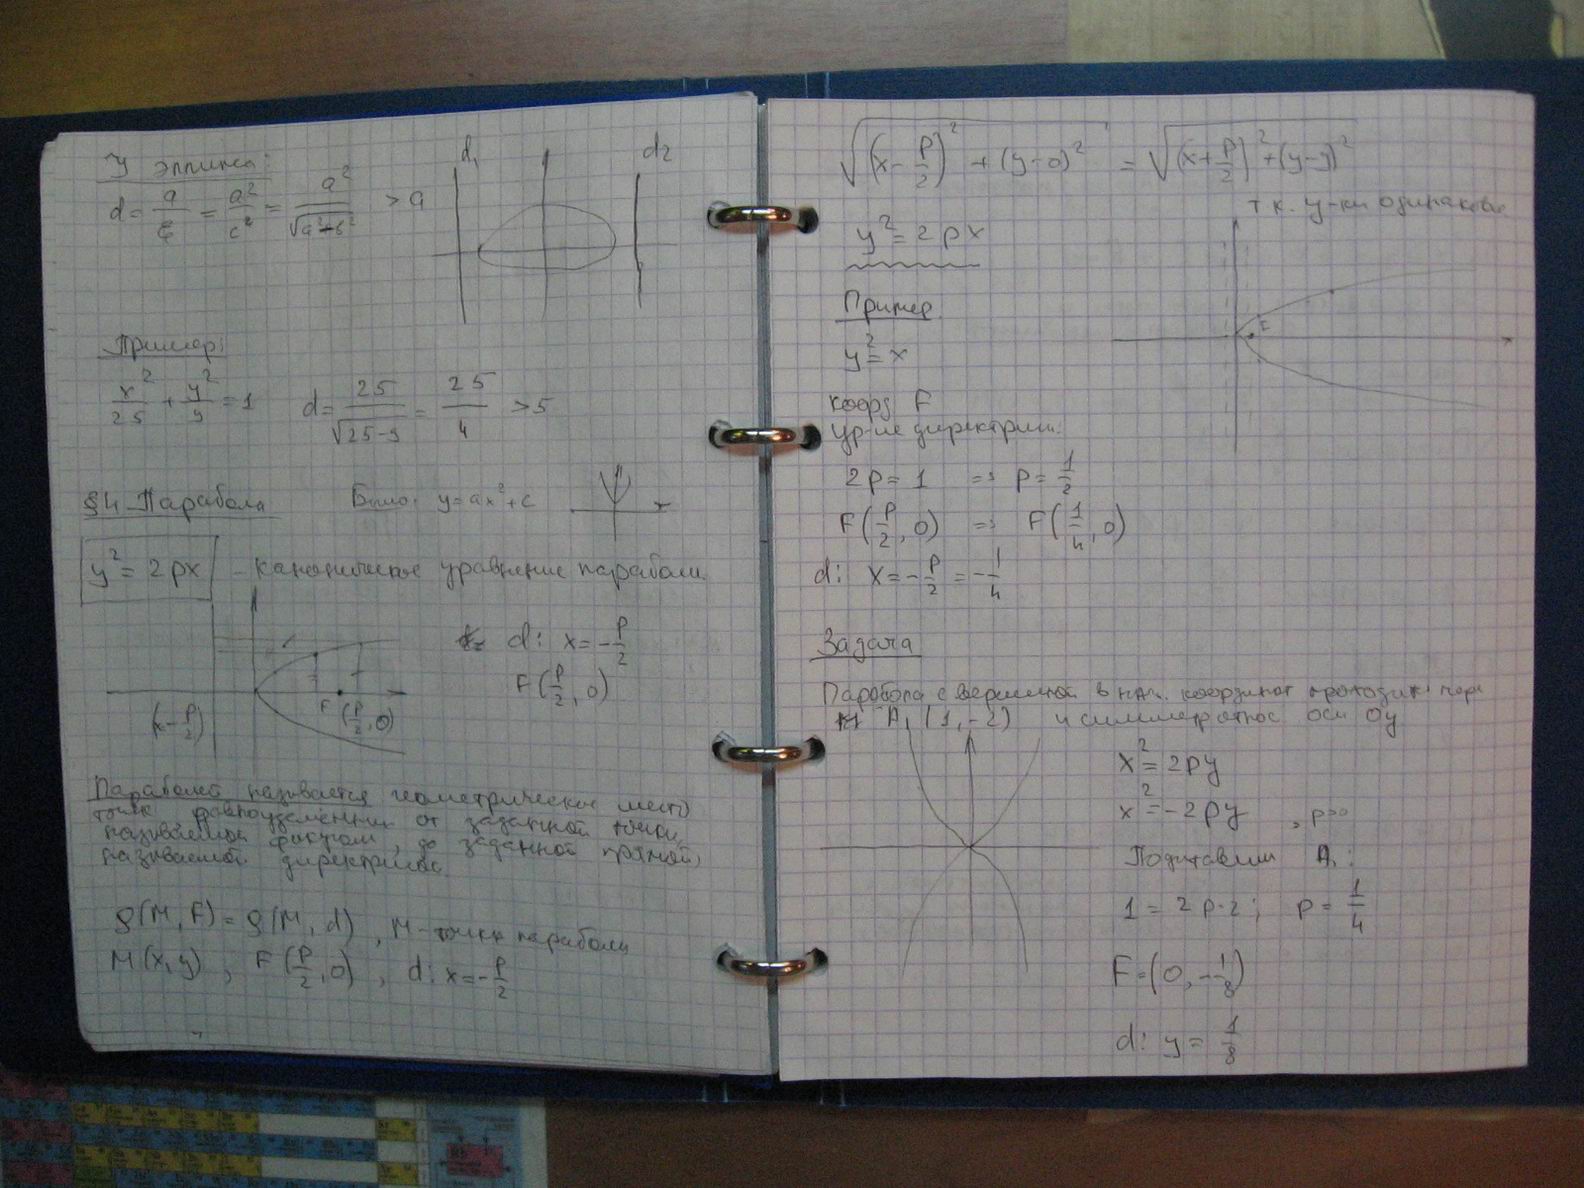 У эллипса:
d₁
d₂
d = a/ε = a²/c = a²/√(a²-b²) > a
Пример:
x²/25 + y²/9 = 1
d = 25/√(25-9) = 25/4 > 5
§4 Парабола
Было: y = ax² + c
y² = 2px - каноническое уравнение параболы
d: x = -p/2
F(p/2, 0)
F (p/2, 0)
(x - p/2)
Параболой называется геометрическое место
точек равноудаленных от заданной точки,
называемой фокусом, до заданной прямой,
называемой директрисой
ρ(M, F) = ρ(M, d), M - точка параболы
M(x, y), F(p/2, 0), d: x = -p/2
√((x - p/2)² + (y - 0)²) = √((x + p/2)² + (y - y)²)
т.к. у-ки одинаковые
y² = 2px
Пример
y² = x
F
коорд F
ур-ие директрис.
2p = 1 => p = 1/2
F(p/2, 0) => F(1/4, 0)
d: x = -p/2 = -1/4
Задача
Парабола с вершиной в нач. координат проходит через
A₁ (1, -2) и симметр относ оси Oy
x² = 2py
x² = -2py, p>0
Подставим A₁:
1 = 2p·2; p = 1/4
F = (0, -1/8)
d: y = 1/8